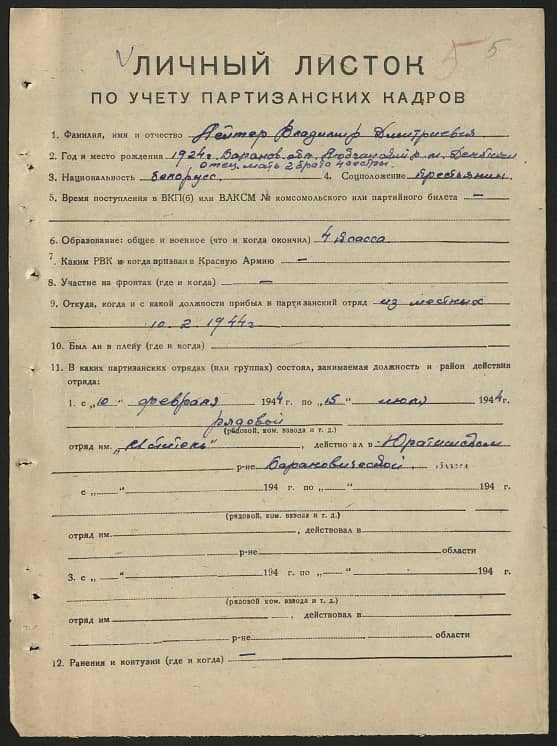 5 5
ЛИЧНЫЙ ЛИСТОК
ПО УЧЕТУ ПАРТИЗАНСКИХ КАДРОВ
1. Фамилия, имя и отчество Лейтер Владимир Дмитриевич
2. Год и место рождения 1924г. Баранов. обл.
отец, мать 2 брата
3. Национальность белорусс. 4. Соцположение крестьянин
5. Время поступления в ВКП(б) или ВЛКСМ № комсомольского или партийного билета —
6. Образование: общее и военное (что и когда окончил) 4 класса
7. Каким РВК и когда призван в Красную Армию —
8. Участие на фронтах (где и когда) —
9. Откуда, когда и с какой должности прибыл в партизанский отряд из местных
10. 2. 1944г
10. Был ли в плену (где и когда)
11. В каких партизанских отрядах (или группах) состоял, занимаемая должность и район действия
отряда:
1. с „10“ февраля 1944 г. по „15“ июля 1944г.
рядовой
(рядовой, ком. взвода и т. д.)
отряд им. , действовал в Юратишском
р-не Барановической области
с „ “ 194 г. по „ “ 194 г.
(рядовой, ком. взвода и т. д.)
отряд им. , действовал в
р-не области
3. с „ “ 194 г. по „ “ 194 г.
(рядовой, ком. взвода и т. д.)
отряд им , действовал в
р-не области
12. Ранения и контузии (где и когда) —